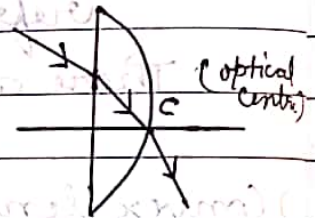 C
(optical
centre)